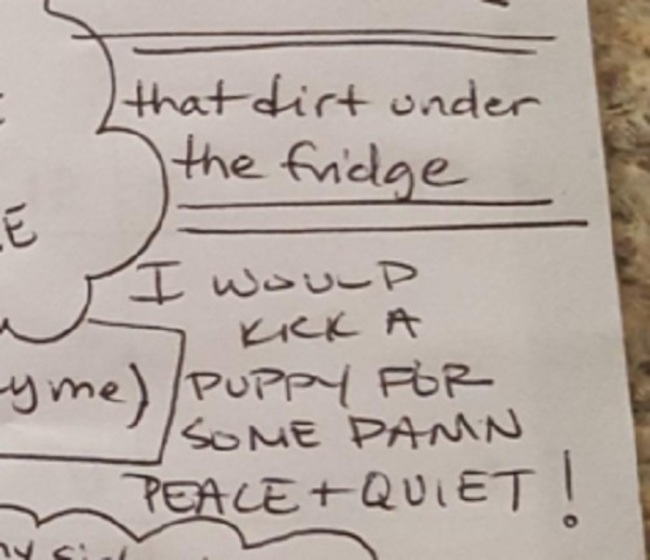 that dirt under
the fridge
I WOULD
KICK A
PUPPY FOR
SOME DAMN
PEACE + QUIET!
yme)
E